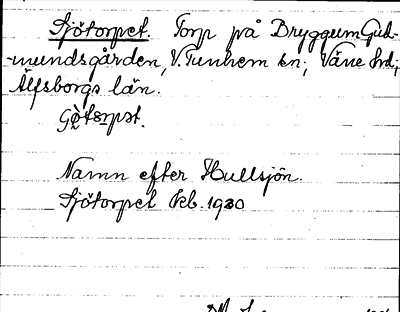 Sjötorpet. Torp på Bryggum Gud-
-mundsgården, V. Tunhem sn; Väne hd;
Älfsborgs län.
Namn efter Hullsjön.
Sjötorpet kb. 1930